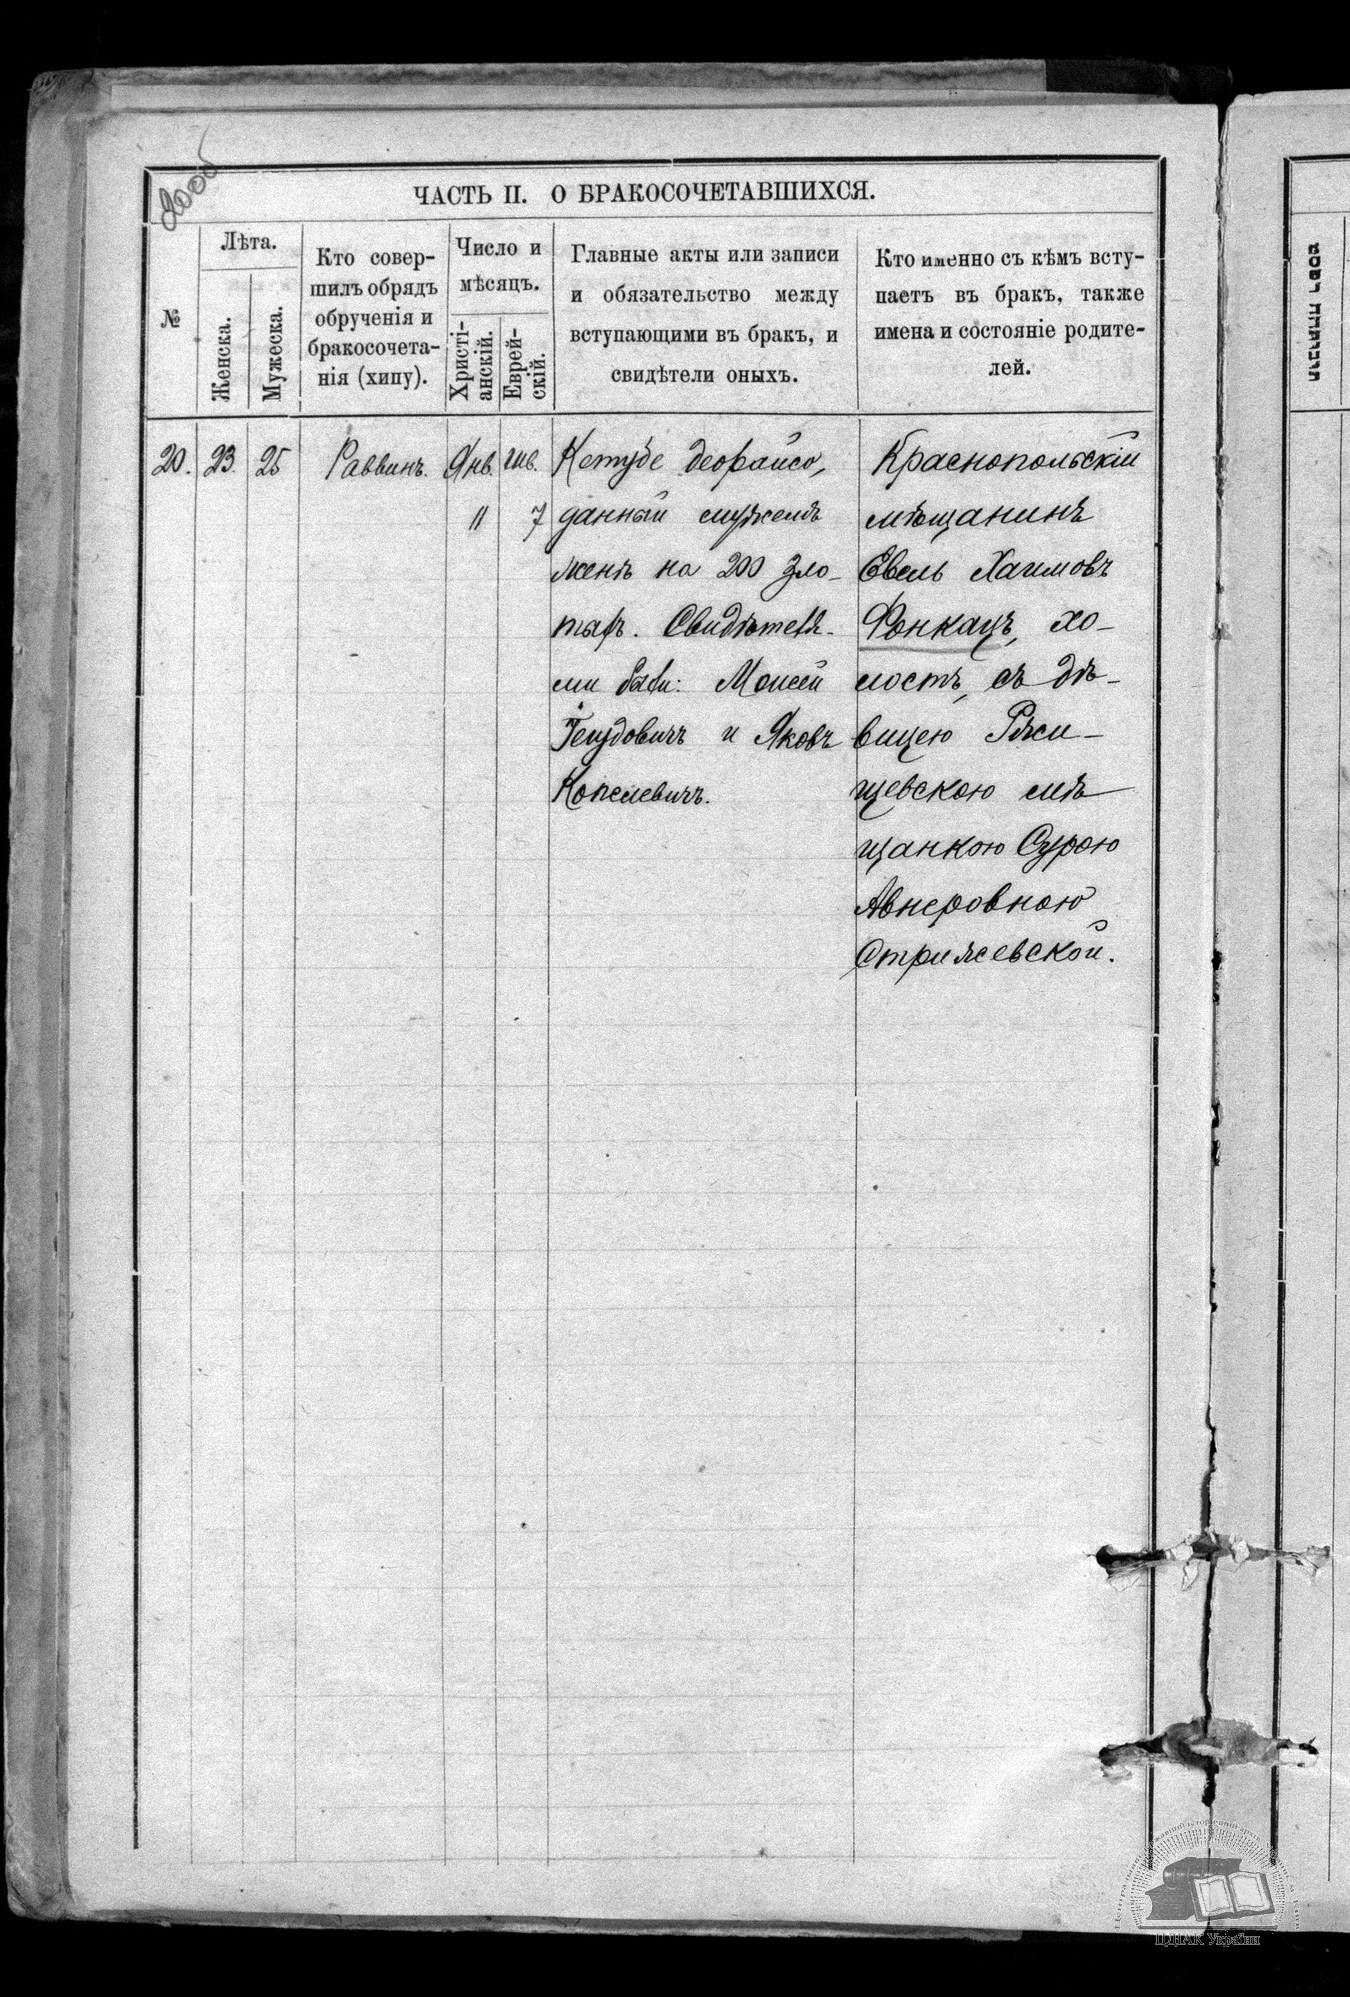 ЧАСТЬ II. О БРАКОСОЧЕТАВШИХСЯ.
№
Лѣта.
Женска.
Мужеска.
Кто совер-
шилъ обрядъ
обрученія и
бракосочета-
нія (хипу).
Число и
мѣсяцъ.
Христі-
анскій.
Еврей-
скій.
Главные акты или записи
и обязательство между
вступающими въ бракъ, и
свидѣтели оныхъ.
Кто именно съ кѣмъ всту-
паетъ въ бракъ, также
имена и состояніе родите-
лей.
20.
23.
25
Раввинъ.
Янв.
11
шв.
7
Кетубе деорайсо,
данный мужемъ
женѣ на 200 зло-
тыхъ. Свидѣтеля-
ми были: Моисей
Гецудовичъ и Яковъ
Копелевичъ.
Краснопольскій
мѣщанинъ
Евель Хаимовъ
Фонкацъ, хо-
лостъ, съ дѣ-
вицею Ржи-
щевскою мѣ
щанкою Сурою
Авнеровною
Стрижевской.
ЦДІАК України